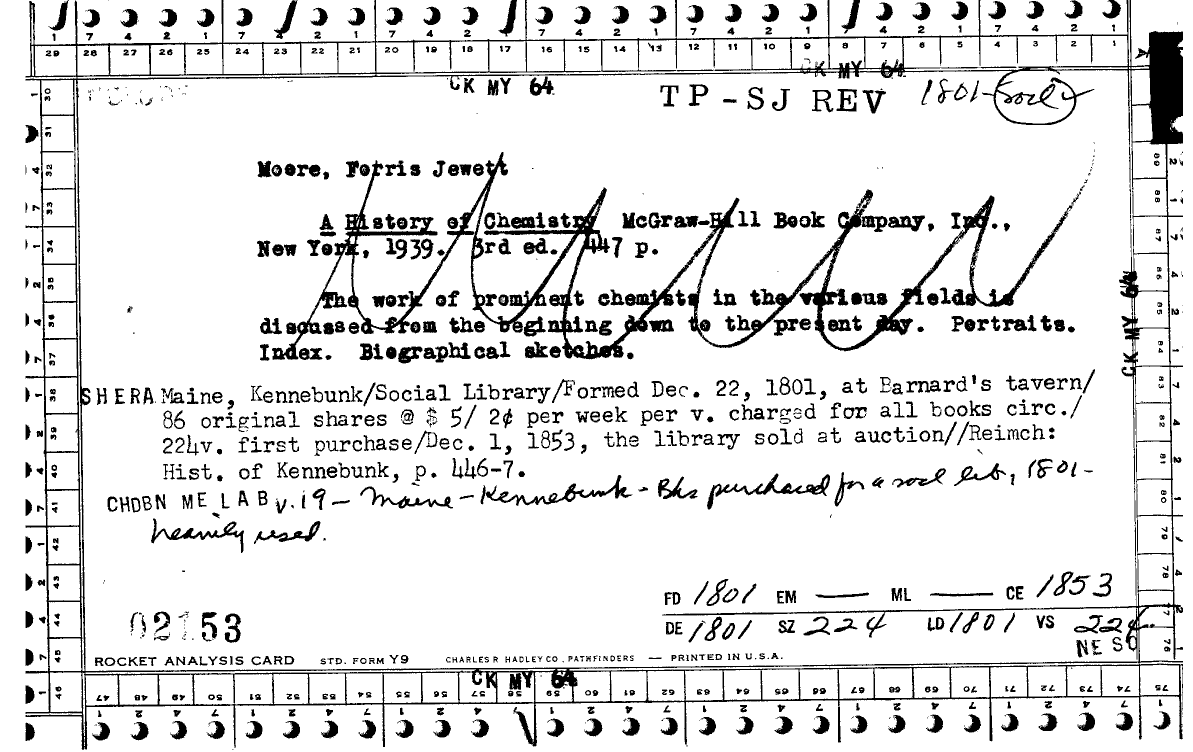 1 7 4 2 1 7 4 2 1 7 4 2 1 7 4 2 1 7 4 2 1 7 4 2 1 7 4 2 1
29 28 27 26 25 24 23 22 21 20 19 18 17 16 15 14 13 12 11 10 9 8 7 6 5 4 3 2 1
CK MY 64
CK MY 64
TP-SJ REV 1801-
Moore, Forris Jewett
A History of Chemistry McGraw-Hill Book Company, Inc.,
New York, 1939. 3rd ed. 447 p.
The work of prominent chemists in the various fields is
discussed from the beginning down to the present day. Portraits.
Index. Biographical sketches.
CK MY 64
SHERA Maine, Kennebunk/Social Library/Formed Dec. 22, 1801, at Barnard's tavern/
86 original shares @ $ 5/ 2¢ per week per v. charged for all books circ./
224v. first purchase/Dec. 1, 1853, the library sold at auction//Reimch:
Hist. of Kennebunk, p. 446-7.
CHDBN ME LAB v.19 — Maine - Kennebunk - Bks purchased for a socl lib, 1801-
heavily used.
FD 1801 EM — ML — CE 1853
DE 1801 SZ 224 LD 1801 VS 224
NE SO
02153
ROCKET ANALYSIS CARD STD. FORM Y9 CHARLES R HADLEY CO., PATHFINDERS — PRINTED IN U.S.A.
CK MY 64
47 48 49 50 51 52 53 54 55 56 57 58 59 60 61 62 63 64 65 66 67 68 69 70 71 72 73 74 75